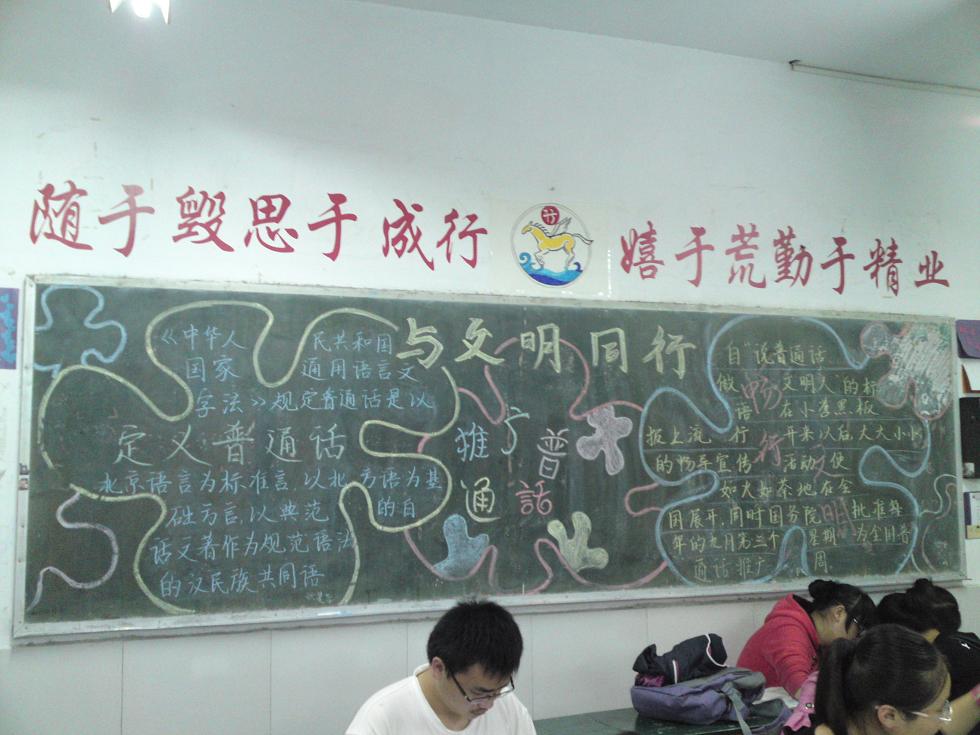 随于毁思于成行
嬉于荒勤于精业
与文明同行
《中华人民共和国
国家通用语言文
字法》规定普通话是以
定义普通话
北京语言为标准言,以北方语为基
础方言,以典范的白
话文著作为规范语法
的汉民族共同语
推广普
通話
自“说普通话
做文明人的标
语在小荃黑板
报上流行开来以后,大大小小
的畅导宣传活动又使
如火如荼地在全
国展开,同时国务院批准每
年的九月第三个星期为全国普
通话推广周.
畅行
明